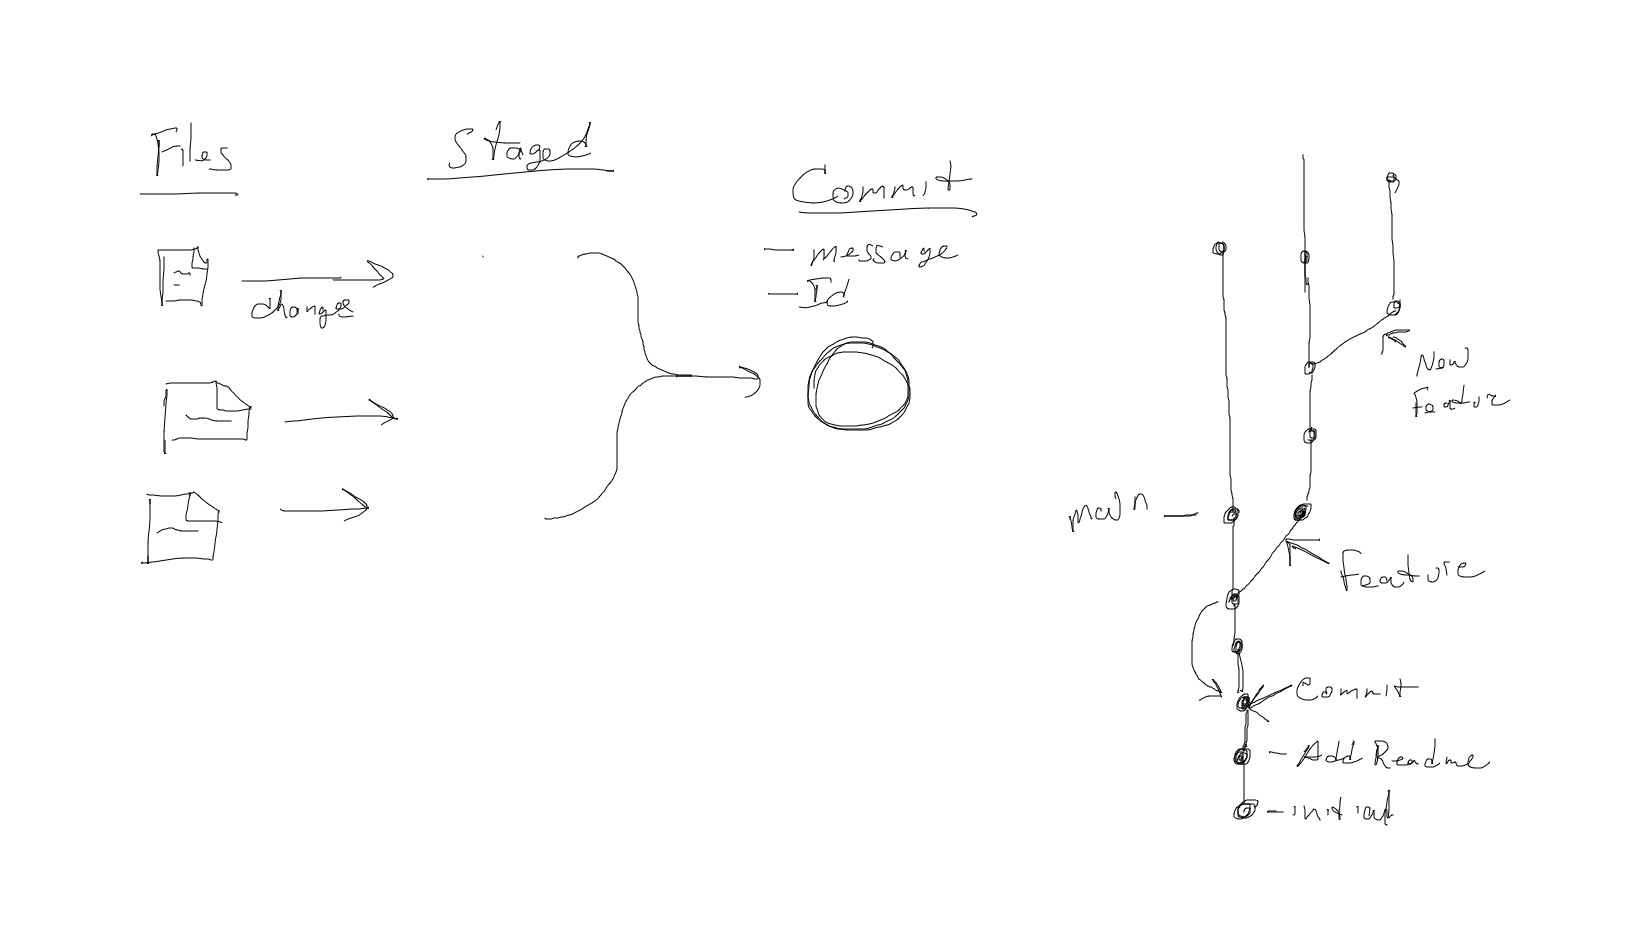 Files
Staged
Commit
- message
- Id
changes
New
Featur
main -
Feature
Commit
- Add Readme
- initial